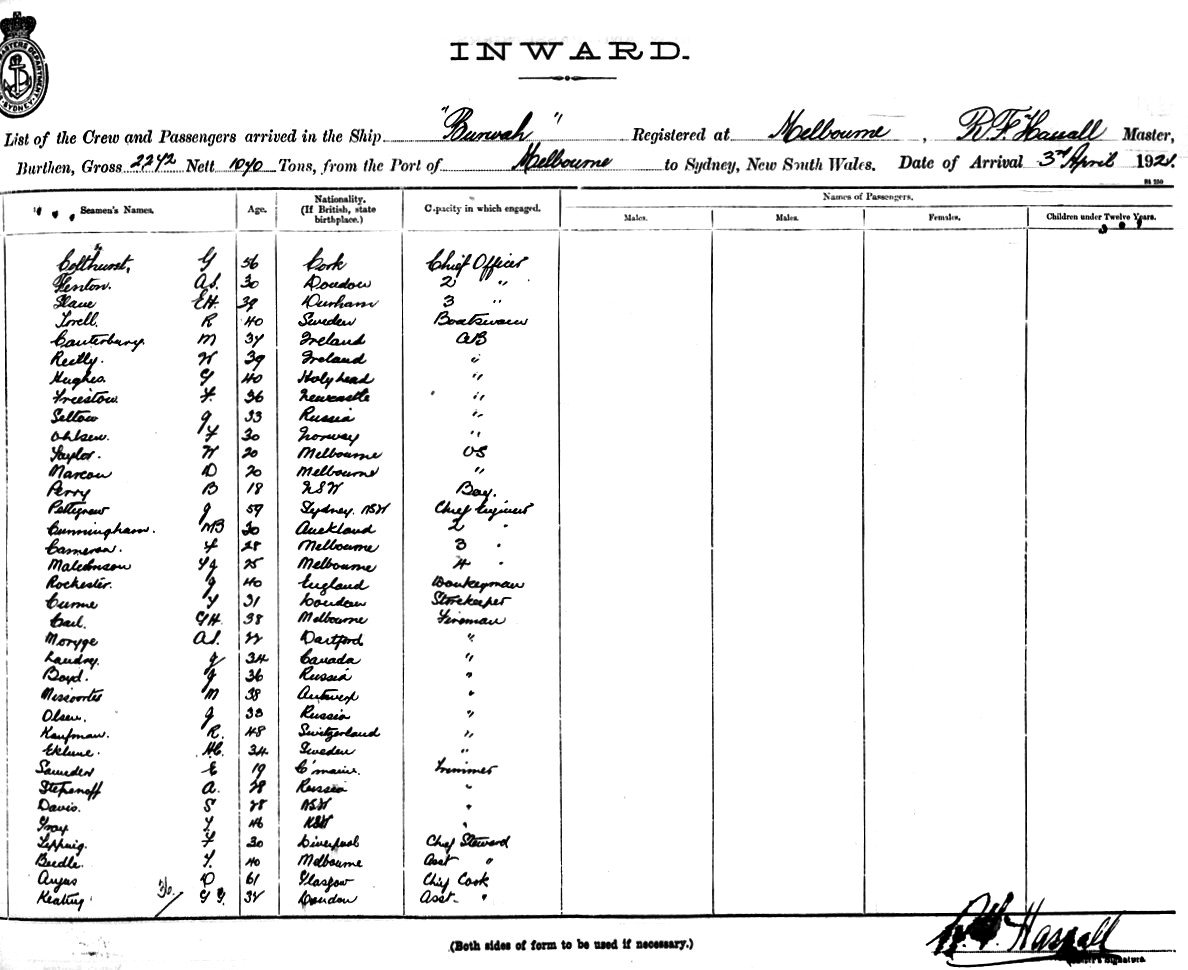 MASTERS DEPARTMENT SYDNEY
INWARD.
List of the Crew and Passengers arrived in the Ship "Burwah" Registered at Melbourne, R F Hassall Master,
Burthen, Gross 2242 Nett 1040 Tons, from the Port of Melbourne to Sydney, New South Wales. Date of Arrival 3rd April 1921.
Seamen's Names. Age. Nationality. (If British, state birthplace.) Capacity in which engaged. Names of Passengers.
Males. Males. Females. Children under Twelve Years.
Colthurst, G 56 Cork Chief Officer
Fenton. A.S. 30 London 2 "
Slave EH. 39 Durham 3 "
Torell. R 40 Sweden Boatswain
Canterbury. M 37 Ireland AB
Reilly. W 39 Ireland "
Hughes G 40 Holyhead "
Freestow. F. 36 Newcastle "
Seltow J 33 Russia "
Ohlsen. F 30 Norway "
Taylor. W 20 Melbourne OS
Marcou D 20 Melbourne "
Perry B 18 NSW Boy.
Pettigrew J 59 Sydney. NSW Chief Engineer
Cunningham. MB 30 Auckland 2 "
Cameron. F 28 Melbourne 3 "
Malcomson 25 Melbourne 4 "
Rochester. J 40 England Donkeyman
Curme 31 London Storekeeper
Carl. GH. 38 Melbourne Fireman
Morgge A.S. 22 Dartford "
Landry. J 34 Canada "
Boyd. J 36 Russia "
M 38 Antwerp "
Olsen. J 33 Russia "
Kaufman. R. 48 Switzerland "
Eklune. 34 Sweden "
Saunder E 19 Trimmer
Stepanoff A. 28 Russia "
Davis. S 28 NSW "
Gray T. 46 NSW "
F 30 Liverpool Chief Steward
Beedle. T. 40 Melbourne Asst "
Angus D 61 Glasgow Chief Cook
Keating. 36/ London Asst. "
(Both sides of form to be used if necessary.)
R. F. Hassall
Master's Signature.